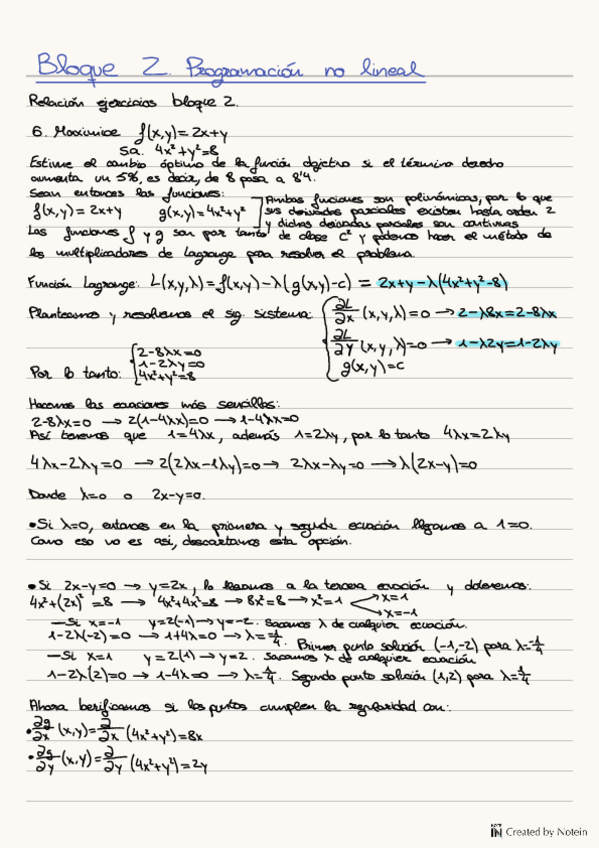 Bloque 2. Programación no lineal
Relación ejercicios bloque 2.
6. Maximice f(x,y)=2x+y
s.a. 4x²+y²=8
Estime el cambio óptimo de la función objetivo si el término derecho
aumenta un 5%, es decir, de 8 pasa a 8'4.
Sean entonces las funciones:
f(x,y)=2x+y g(x,y)=4x²+y²
Ambas funciones son polinómicas, por lo que
sus derivadas parciales existen hasta orden 2
y dichas derivadas parciales son continuas
Las funciones f y g son por tanto de clase C² y podemos hacer el método de
los multiplicadores de Lagrange para resolver el problema.
Función Lagrange: L(x,y,λ)=f(x,y)-λ(g(x,y)-c) = 2x+y-λ(4x²+y²-8)
Planteamos y resolvemos el sig. sistema: { ∂L/∂x (x,y,λ)=0 → 2-λ8x=2-8λx
∂L/∂y (x,y,λ)=0 → 1-λ2y=1-2λy
g(x,y)=c
Por lo tanto: { 2-8λx=0
1-2λy=0
4x²+y²=8
Hacemos las ecuaciones más sencillas:
2-8λx=0 → 2(1-4λx)=0 → 1-4λx=0
Así tenemos que 1=4λx, además 1=2λy, por lo tanto 4λx=2λy
4λx-2λy=0 → 2(2λx-1λy)=0 → 2λx-λy=0 → λ(2x-y)=0
Donde λ=0 o 2x-y=0.
• Si λ=0, entonces en la primera y segunda ecuación llegamos a 1=0.
Como eso no es así, descartamos esta opción.
• Si 2x-y=0 → y=2x, lo llevamos a la tercera ecuación y obtenemos:
4x²+(2x)²=8 → 4x²+4x²=8 → 8x²=8 → x²=1 → x=1
→ x=-1
— Si x=-1 y=2(-1) → y=-2. Sacamos λ de cualquier ecuación.
1-2λ(-2)=0 → 1+4λ=0 → λ=-1/4. Primer punto solución (-1,-2) para λ=-1/4
— Si x=1 y=2(1) → y=2. Sacamos λ de cualquier ecuación
1-2λ(2)=0 → 1-4λ=0 → λ=1/4. Segundo punto solución (1,2) para λ=1/4
Ahora berificamos si los puntos cumplen la regularidad con:
• ∂g/∂x (x,y)=∂/∂x (4x²+y²)=8x
• ∂g/∂y (x,y)=∂/∂y (4x²+y²)=2y
NOTE IN Created by Notein